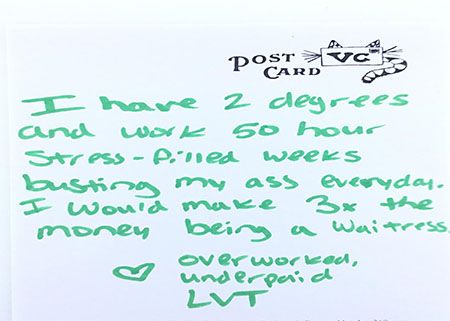 POST CARD VG
I have 2 degrees
and work 50 hour
stress-filled weeks
busting my ass everyday.
I would make 3x the
money being a waitress.
♡ overworked,
underpaid
LVT